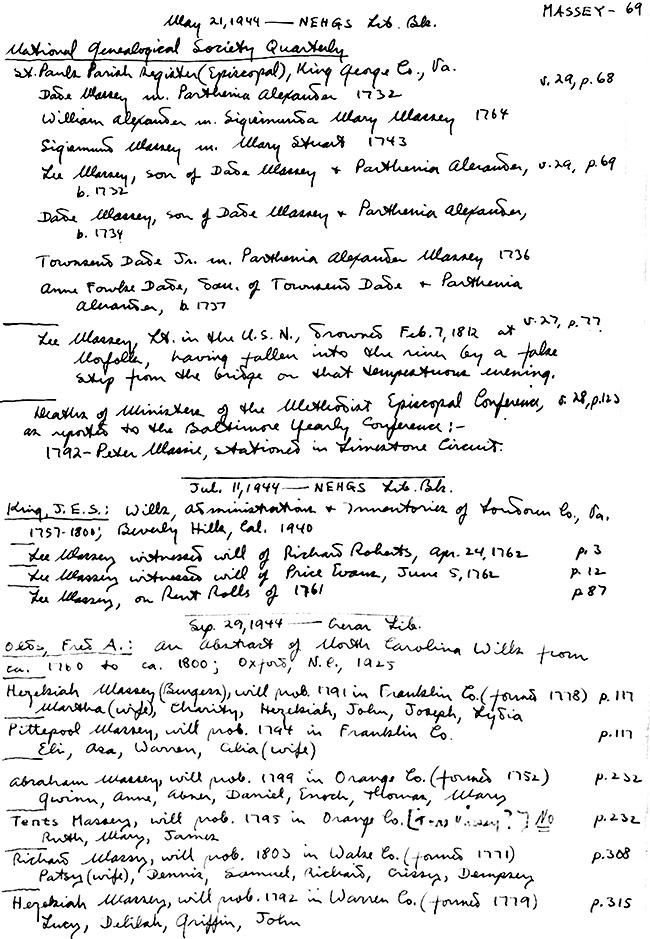 MASSEY - 69
May 21, 1944 — NEHGS Lib. Bks.
National Genealogical Society Quarterly
St. Pauls Parish Register (Episcopal), King George Co., Va.
v. 29, p. 68
Dade Massey m. Parthenia Alexander 1732
William Alexander m. Sigismunda Mary Massey 1764
Sigismund Massey m. Mary Stuart 1743
Lee Massey, son of Dade Massey + Parthenia Alexander, v. 29, p. 69
b. 1732
Dade Massey, son of Dade Massey + Parthenia Alexander,
b. 1734
Townsend Dade Jr. m. Parthenia Alexander Massey 1736
Anne Fowlke Dade, dau. of Townsend Dade + Parthenia
Alexander, b. 1737
Lee Massey, Lt. in the U.S.N., drowned Feb. 7, 1812 at v. 27, p. 77
Norfolk, having fallen into the river by a false
step from the bridge on that tempestuous evening.
Deaths of Ministers of the Methodist Episcopal Conference, v. 28, p. 123
as reported to the Baltimore Yearly Conference:-
1792 - Peter Massie, stationed in Limestone Circuit.
Jul. 11, 1944 — NEHGS Lib. Bks.
King, J.E.S.: Wills, Administrations + Inventories of Loudoun Co., Va.
1757-1800; Beverly Hills, Cal. 1940
Lee Massey witnessed will of Richard Roberts, Apr. 24, 1762 p. 3
Lee Massey witnessed will of Price Evans, June 5, 1762 p. 12
Lee Massey, on Rent Rolls of 1761 p 87
Sep. 29, 1944 — Crerar Lib.
Olds, Fred A.: An Abstract of North Carolina Wills from
ca. 1760 to ca. 1800; Oxford, N.C., 1925
Hezekiah Massey (Burgess), will prob. 1791 in Franklin Co. (formed 1778) p. 117
Martha (wife), Charity, Hezekiah, John, Joseph, Lydia
Pittepool Massey, will prob. 1794 in Franklin Co. p. 117
Eli, Asa, Warren, Celia (wife)
Abraham Massey, will prob. 1799 in Orange Co. (formed 1752) p. 232
Qwinn, Anne, Abner, Daniel, Enoch, Thomas, Mary
Tents Massey, will prob. 1795 in Orange Co. [ ?] No p. 232
Ruth, Mary, James
Richard Massy, will prob. 1803 in Wake Co. (formed 1771) p. 308
Patsy (wife), Dennis, Samuel, Richard, Crissy, Dempsey
Hezekiah Massey, will prob. 1792 in Warren Co. (formed 1779) p. 315
Lucy, Delilah, Griffin, John